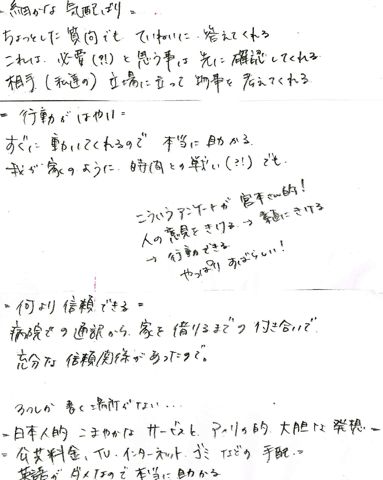 = 細かな 気配り =
ちょっとした 質問でも ていねいに 答えてくれる
これは 必要(?!)と思う事は 先に 確認してくれる
相手 (私達の) 立場に立って 物事を 考えてくれる
= 行動が はやい =
すぐに 動いてくれるので 本当に 助かる。
我が家のように 時間との戦い(?!) でも。
こういうアンケートが 宮本さん的!
人の意見をきける → 素直にきける
→ 行動できる
やっぱり すばらしい!
= 何より 信頼できる =
病院での 通訳から、家を 借りるまでの 付き合いで
充分な 信頼関係が あったので。
うつしか 書く場所がない...
= 日本人的 こまやかな サービスと アメリカ的 大胆な 発想 =
= 公共料金、TV・インターネット、ゴミ などの 手配 =
英語が ダメなので 本当に 助かる